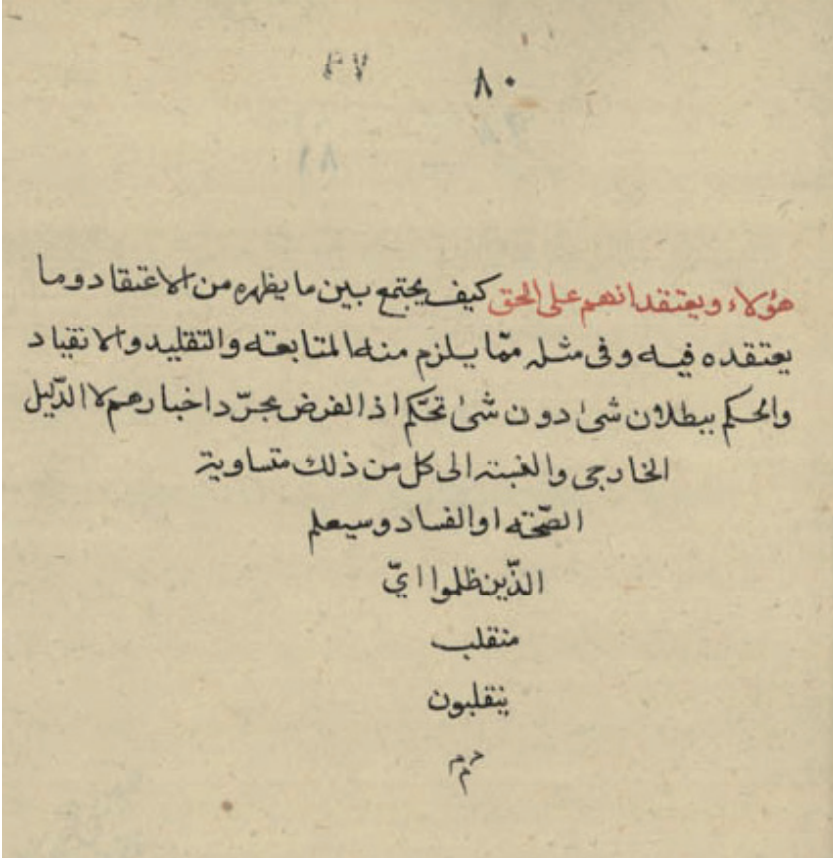 ٨٠ ٤٧
٨١
هؤلاء ويعتقد انهم على الحق كيف يجتمع بين ما يظهره من الاعتقاد وما
يعتقده فيه وفى مثله ممّا يلزم منه المتابعة والتقليد والانقياد
والحكم ببطلان شئ دون شئ تحكّم اذ الفرض مجرّد اخبارهم لا الدّليل
الخارجى والنسبة الى كل من ذلك متساوية
الصّحّة او الفساد وسيعلم
الّذين ظلموا اىّ
منقلب
ينقلبون